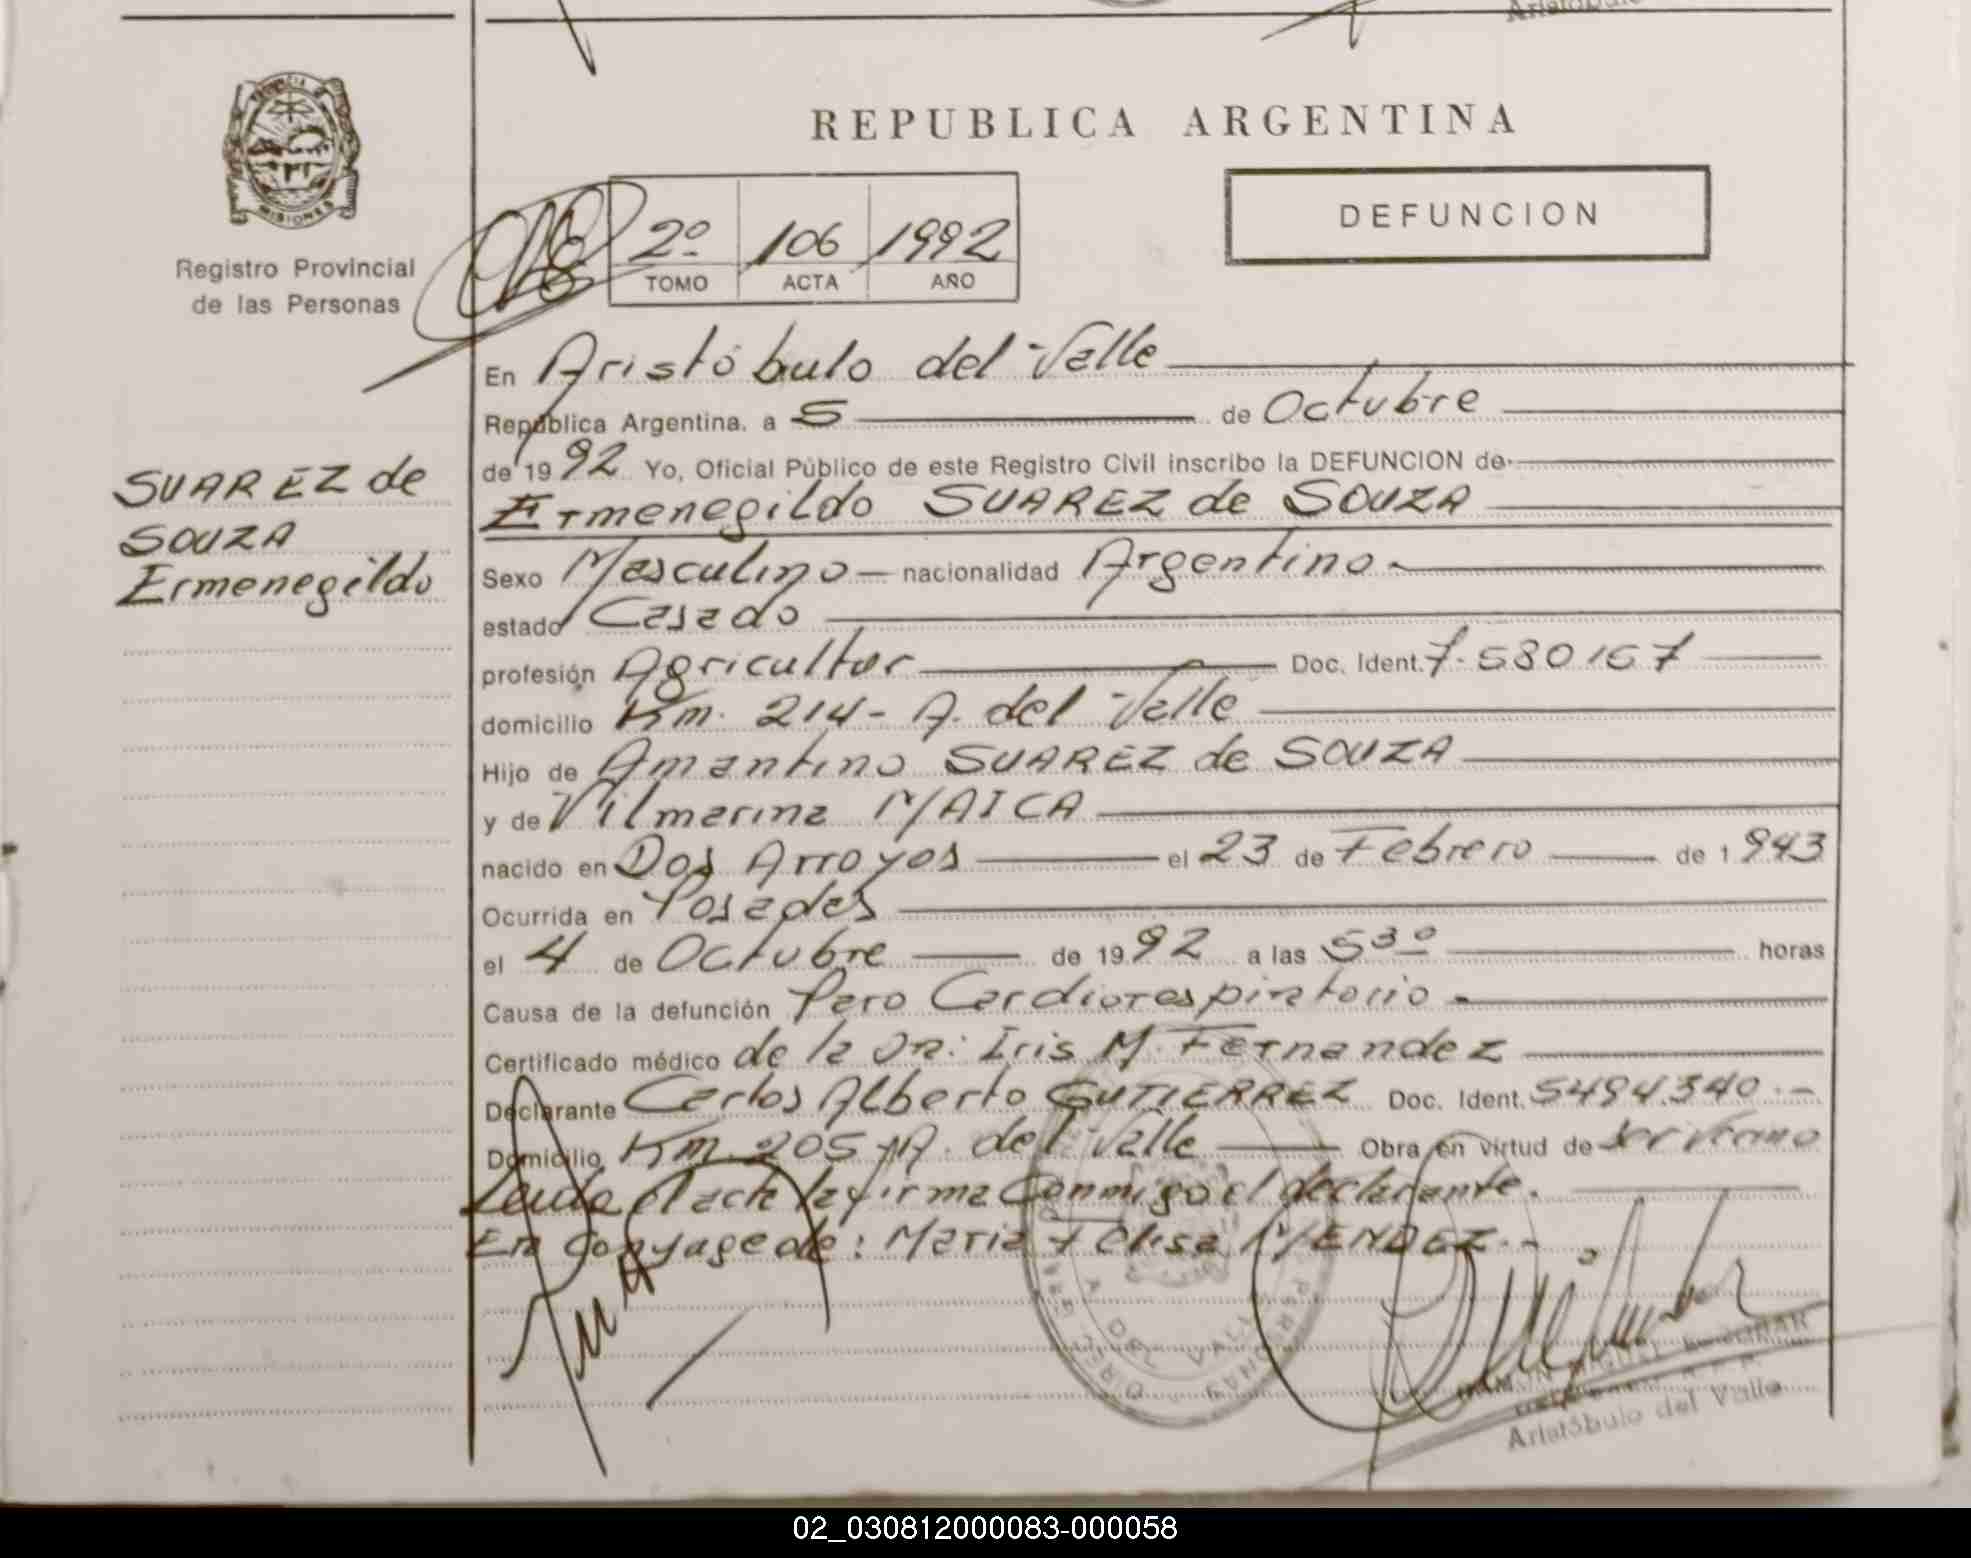 Aristóbulo
PROVINCIA D
MISIONES
Registro Provincial
de las Personas
REPUBLICA ARGENTINA
2º 106 1992
TOMO ACTA AÑO
DEFUNCION
SUAREZ de
SOUZA
Ermenegildo
En Aristóbulo del Valle
República Argentina, a 5 de Octubre
de 1992 Yo, Oficial Público de este Registro Civil inscribo la DEFUNCION de
Ermenegildo SUAREZ de SOUZA
Sexo Masculino nacionalidad Argentino
estado Casado
profesión Agricultor Doc. Ident. 7.580167
domicilio Km. 214- A. del Valle
Hijo de Amantino SUAREZ de SOUZA
y de Vilmarina MAICA
nacido en Dos Arroyos el 23 de Febrero de 1943
Ocurrida en Posadas
el 4 de Octubre de 1992 a las 5³⁰ horas
Causa de la defunción Paro Cardiorespiratorio
Certificado médico de la Dra: Iris M. Fernandez
Declarante Carlos Alberto GUTIERREZ Doc. Ident. 5494.340.-
Domicilio Km. 205- A. del Valle Obra en virtud de
Leida el acta la firma Conmigo el declarante.
Era Conyage de: Maria Felisa MENDEZ.-
A DEL VALLE
PERSONAS
RAMON MIGUEL
Aristóbulo del Valle
02_030812000083-000058